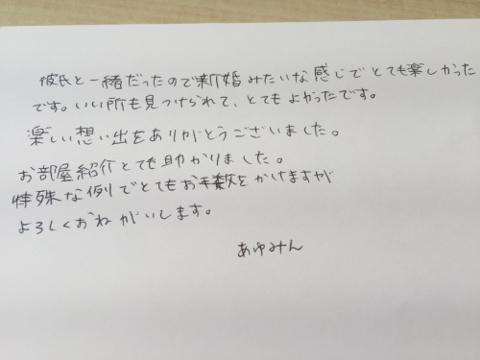 彼氏と一緒だったので新婚みたいな感じでとても楽しかった
です。いい所も見つけられて、とてもよかったです。
楽しい想い出をありがとうございました。
お部屋紹介とても助かりました。
特殊な例でとてもお手数をかけますが
よろしくおねがいします。
あゆみん